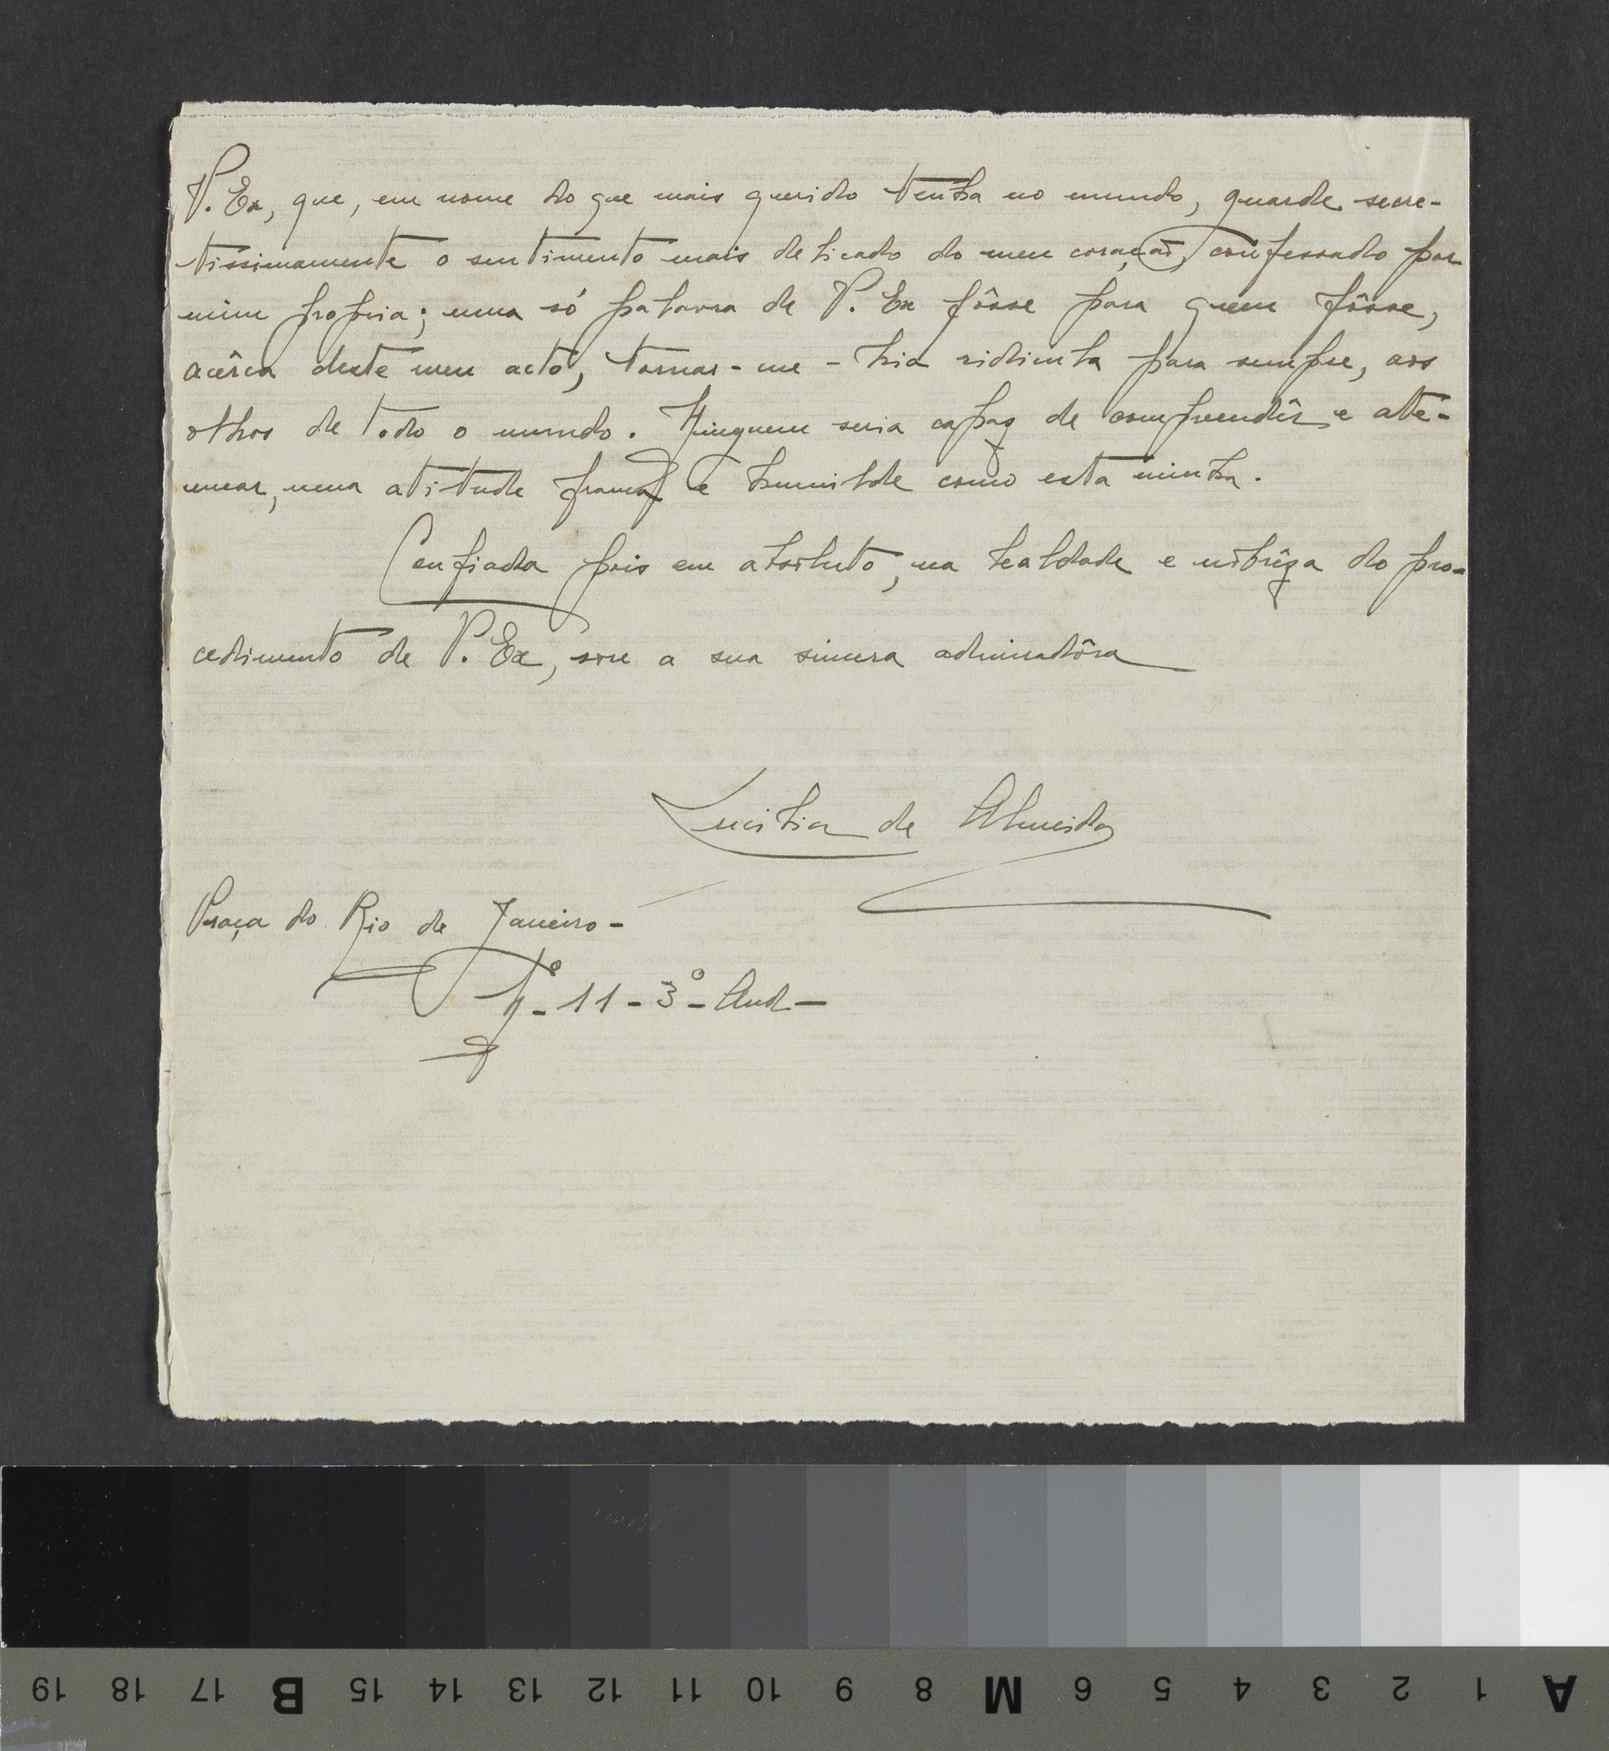 V. Ex, que, em nome do que mais querido tenha no mundo, guarde secre-
tissimamente o sentimento mais delicado do meu coração, confessado por
mim propria; uma só palavra de V. Ex fôsse para quem fôsse,
acêrca deste meu acto, tornar-me-hia ridicula para sempre, aos
olhos de todo o mundo. Ninguem seria capaz de compreendêr e ate-
nuar, uma atitude franca e humilde como esta minha.
Confiada pois em absoluto, na lealdade e nobrêza do pro-
cedimento de V. Ex, sou a sua sincera admiradôra
Lucilia de Almeida
Praça do Rio de Janeiro-
Nº-11-3º-And-
A 1 2 3 4 5 6 M 8 9 10 11 12 13 14 15 B 17 18 19